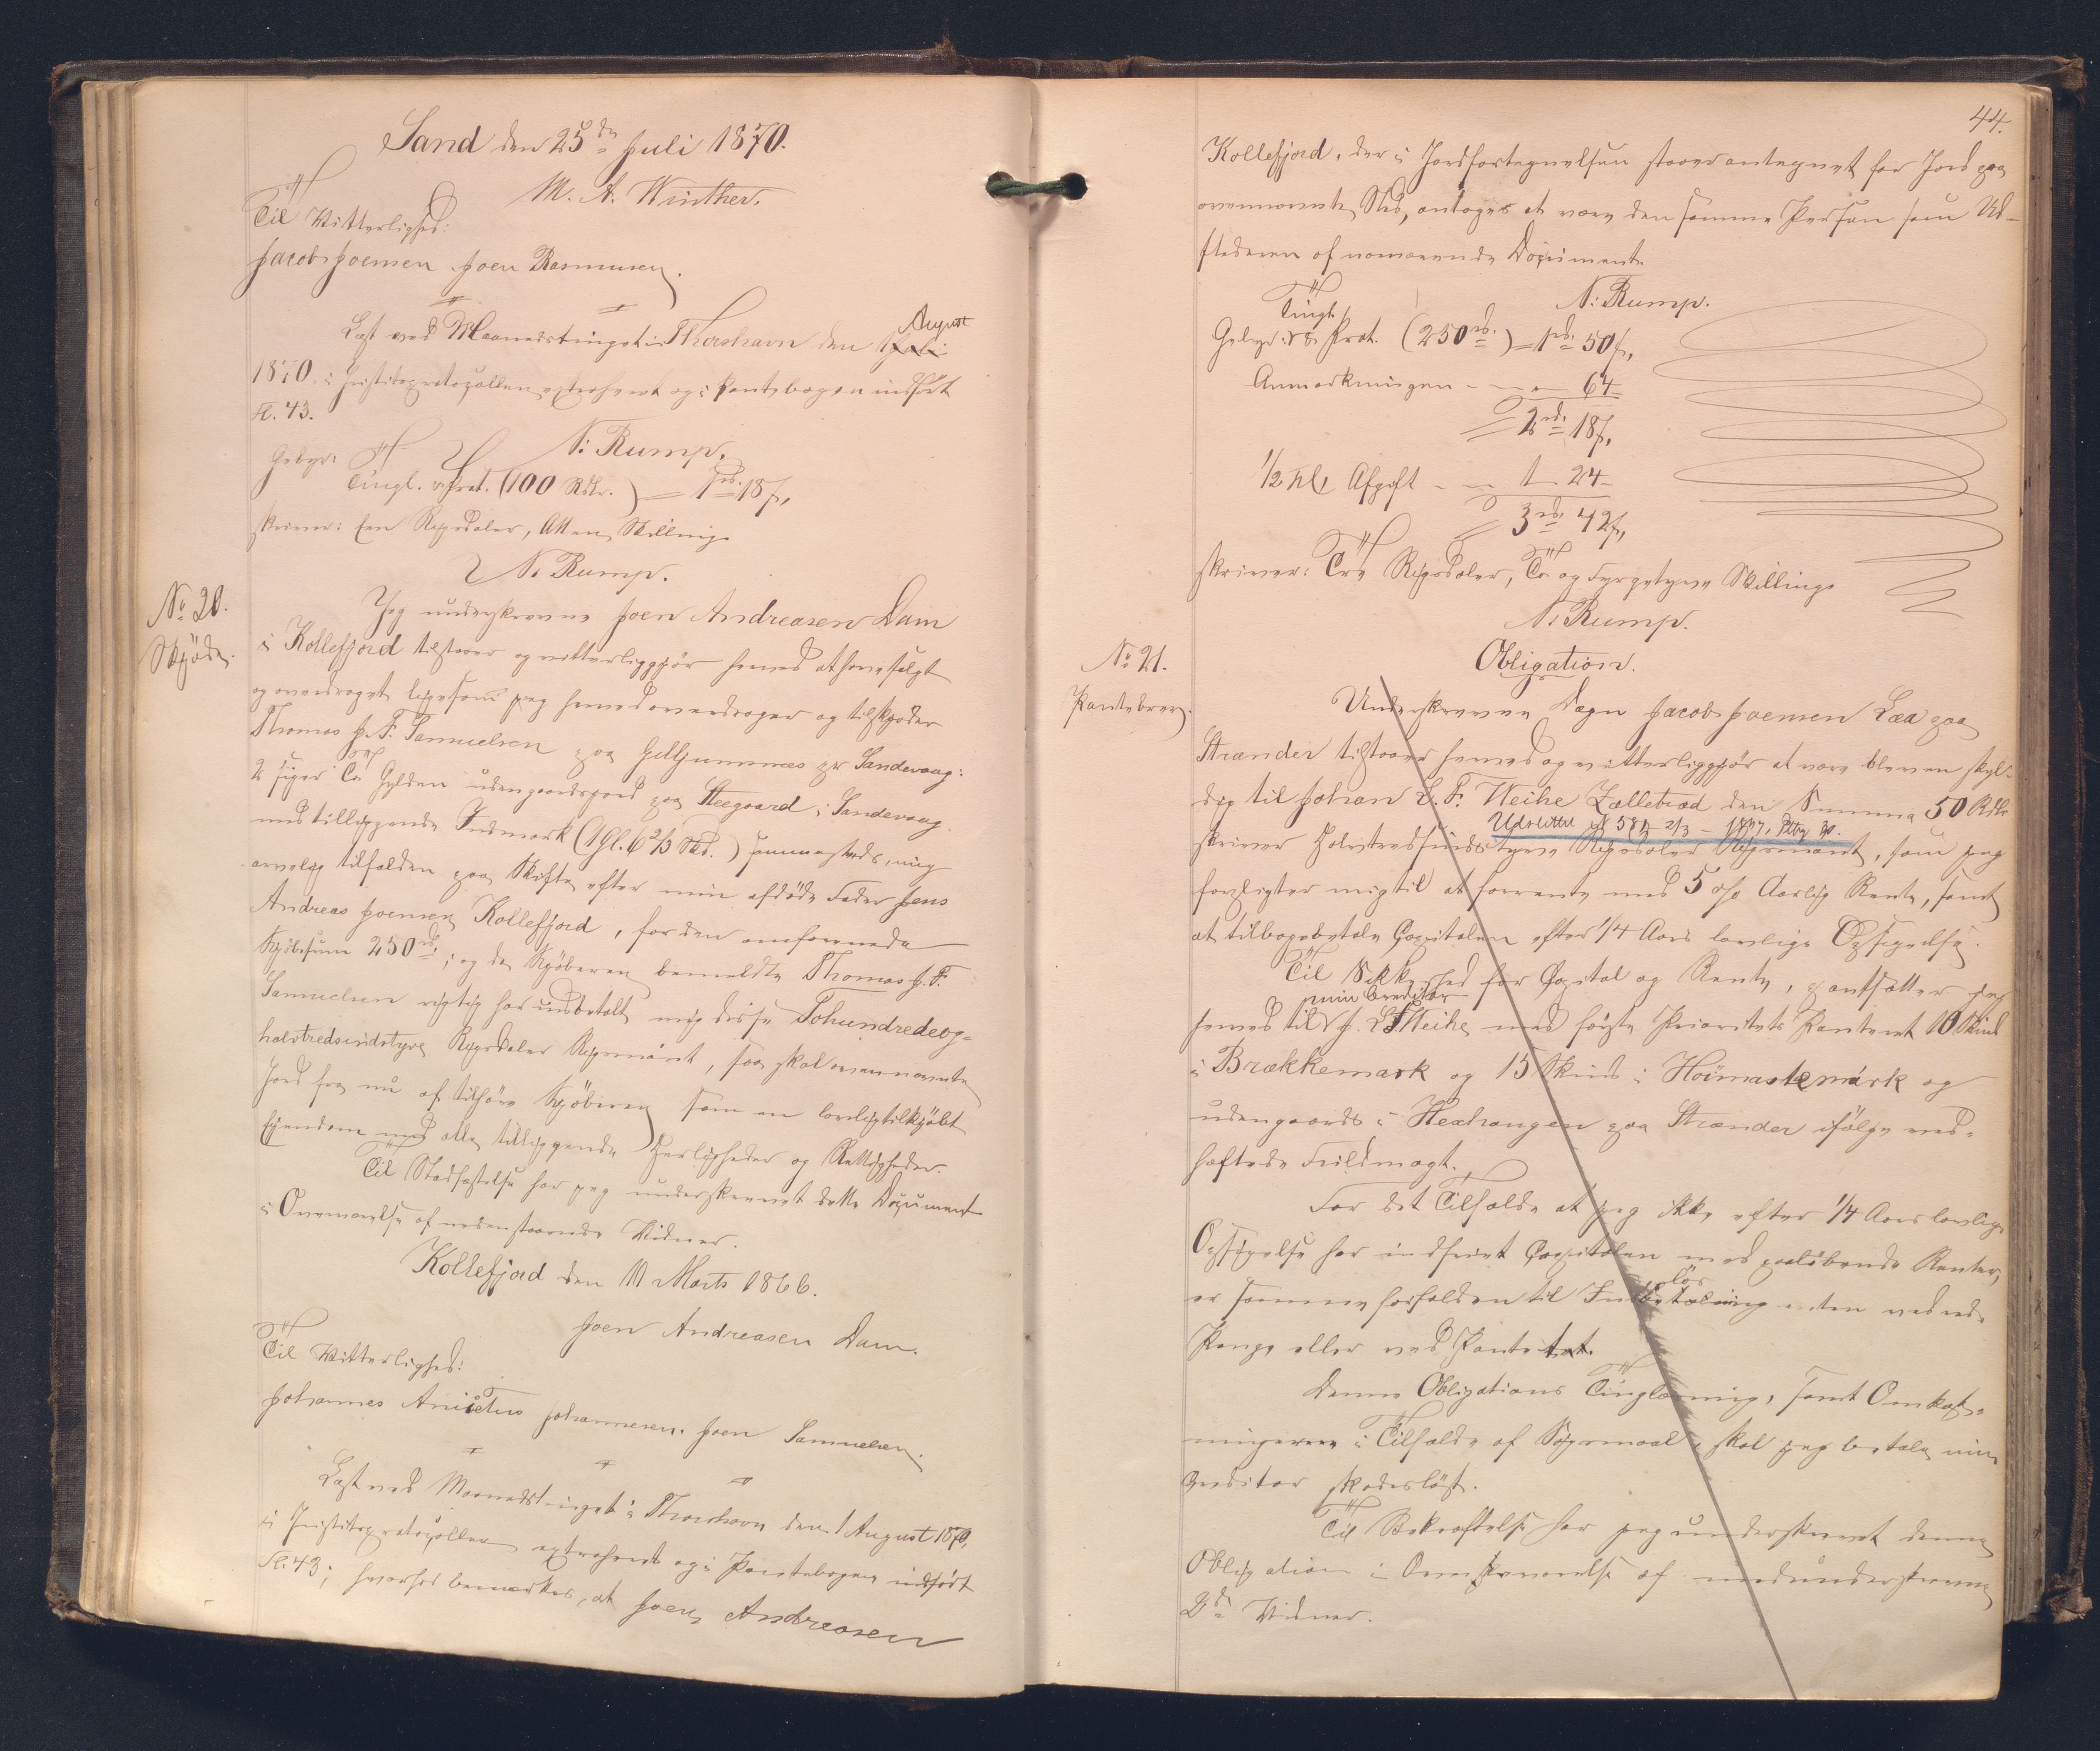 Sand den 25de Juli 1870.
M. A. Winther.
Til Vitterlighed:
Jacob Joensen Joen Rasmussen.
Læst ved Maanedstinget i Thorshavn den 1 Juli August
1870, i Justitsprotocollen extraheret og i Pantebogen indført
Fl. 43.
N: Rump.
Gebyr:
Tingl. & Prot. (100 Rdlr.) = 1 rd. 18 ß,
skriver: Een Rigsdaler, Atten Skilling
N. Rump.
No 20.
Skjøde.
Jeg underskrevne Joen Andreasen Dam
i Kollefjord tilstaaer og vitterliggjør herved at have solgt
og overdraget ligesom jeg herved overdrager og tilskjøder
Thomas J. F. Samuelsen paa Giljumnæs pr Sandevaag:
2 siger To Gylden udengaardsjord paa Steegaard i Sandevaag
med tilliggende Indmark (1 Gl. 6 2/3 Skd.) sammesteds, mig
arvelig tilfalden paa Skifte efter min afdøde Fader Jens
Andreas Joensen Kollefjord, for den omforenede
Kjøbesum 250 rd.; og da Kjøberen bemeldte Thomas J. F.
Samuelsen rigtig har udbetalt mig disse Tohundredeog-
halvtredsindstyve Rigsdaler Rigsmønt, saa skal ovennævnte
Jord fra nu af tilhøre Kjøberen som en lovligtilkjøbt
Eiendom med alle tilliggende Herligheder og Rettigheder.
Til Stadfæstelse har jeg underskrevet dette Document
i Overværelse af nedenstaaende Vidner.
Kollefjord den 11 Marts 1866.
Joen Andreasen Dam.
Til Vitterlighed:
Johannes Anicetus Johannesen. Joen Samuelsen.
Læst ved Maanedstinget i Thorshavn den 1 August 1870,
i Justitsprotocollen extraheret og i Pantebogen indført
Fl. 43; hvorhos bemærkes, at Joen Andreasen
44.
Kollefjord, der i Jordfortegnelsen staaer antegnet for Jord paa
ovennævnte Sted, antages at være den samme Person som Ud-
stederen af nærværende Document
N: Rump.
Tingl.
Gebyr: & Prot. (250 rd.) = 1 rd. 50 ß,
Anmærkningen - - - 64
2 rd. 18 ß,
1/2 pCt Afgift - - 1 24
3 rd. 42 ß,
skriver: Tre Rigsdaler, To og Fyrgetyve Skilling
N. Rump.
No 21.
Pantebrev.
Obligation.
Underskrevne Degn Jacob Joensen Lea paa
Strænder tilstaaer herved og vitterliggjør at være bleven skyl-
dig til Johan L. F. Weihe Zælletræd den Summa 50 Rdlr
Udslettet 2/3 - 1897,
skriver Halvtredsindstyve Rigsdaler Rigsmønt, som jeg
forpligter mig til at forrente med 5 o/o Aarlig Rente, samt
at tilbagebetale Capitalen efter 1/4 Aars lovlige Opsigelse.
Til Sikkerhed for Capital og Rente, pantsætter jeg
herved til min Creditor J. L. F. Weihe med første Prioritets Panteret 10 Skind
i Brækkemark og 15 Skind i Hoimastemark og
udengaards i Hexhaugen paa Strænder ifølge ved-
hæftede Fuldmagt.
For det Tilfælde at jeg ikke efter 1/4 Aars lovlige
Opsigelse har indfriet Capitalen med paaløbende Renter,
er samme forfalden til Indløsning enten ved rede
Penge eller ved Pantet.
Denne Obligations Tinglæsning, samt Omkost-
ningerne i Tilfælde af Søgsmaal, skal jeg betale min
Creditor skadesløst.
Til Bekræftelse har jeg underskrevet denne
Obligation i Overværelse af medunderskrevne
2de Vidner.